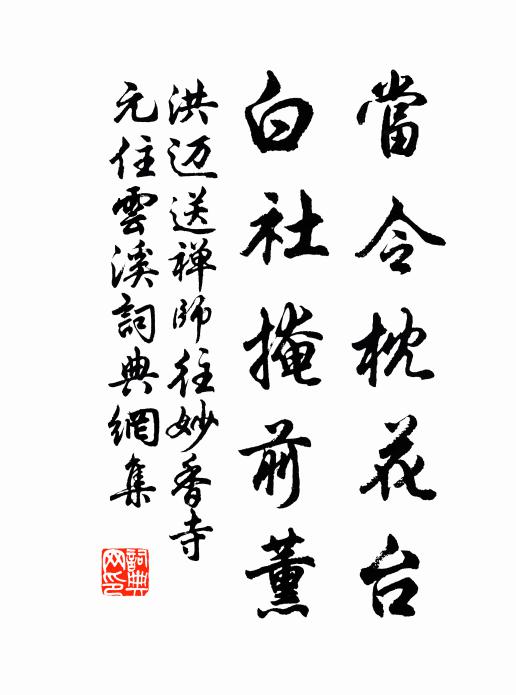 當令枕花台
白社掩前薰
洪迈送禅師往妙香寺
元住雲溪詞典網集
詞典网印